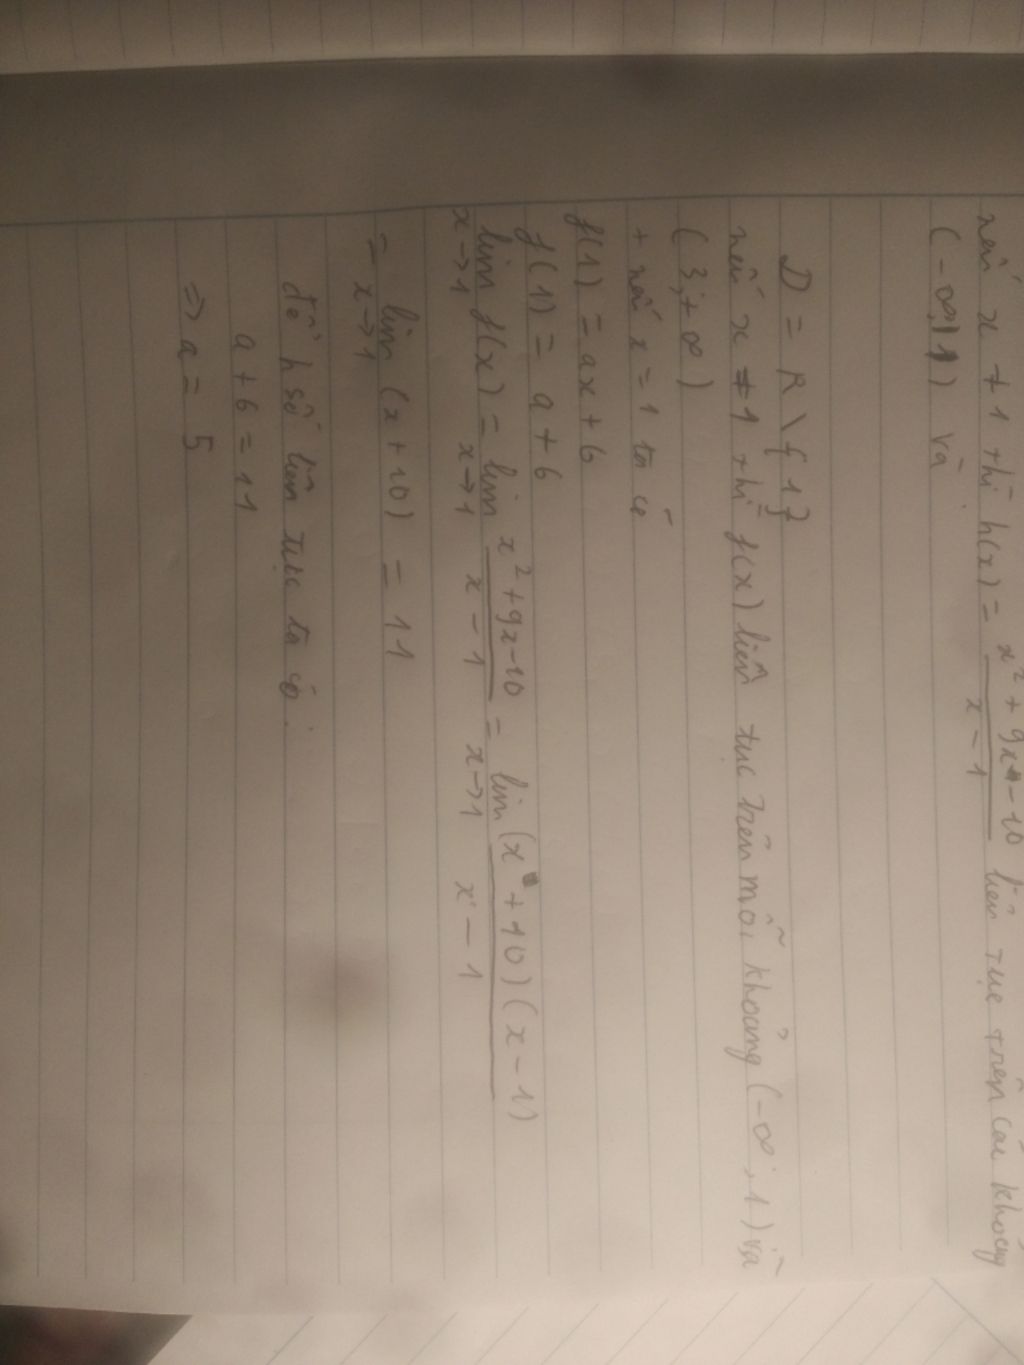 nếu x ≠ 1 thì h(x) = x² + 9x - 10 / x - 1 liên tục trên các khoảng
(-∞, 1) và
D = R \ {1}
nếu x ≠ 1 thì f(x) liên tục trên mỗi khoảng (-∞; 1) và
(3; +∞)
+ nếu x = 1 ta có
f(1) = ax + 6
f(1) = a + 6
lim x→1 f(x) = lim x→1 x² + 9x - 10 / x - 1 = lim x→1 (x + 10)(x - 1) / x - 1
= lim x→1 (x + 10) = 11
để h số liên tục ta có:
a + 6 = 11
⇒ a = 5